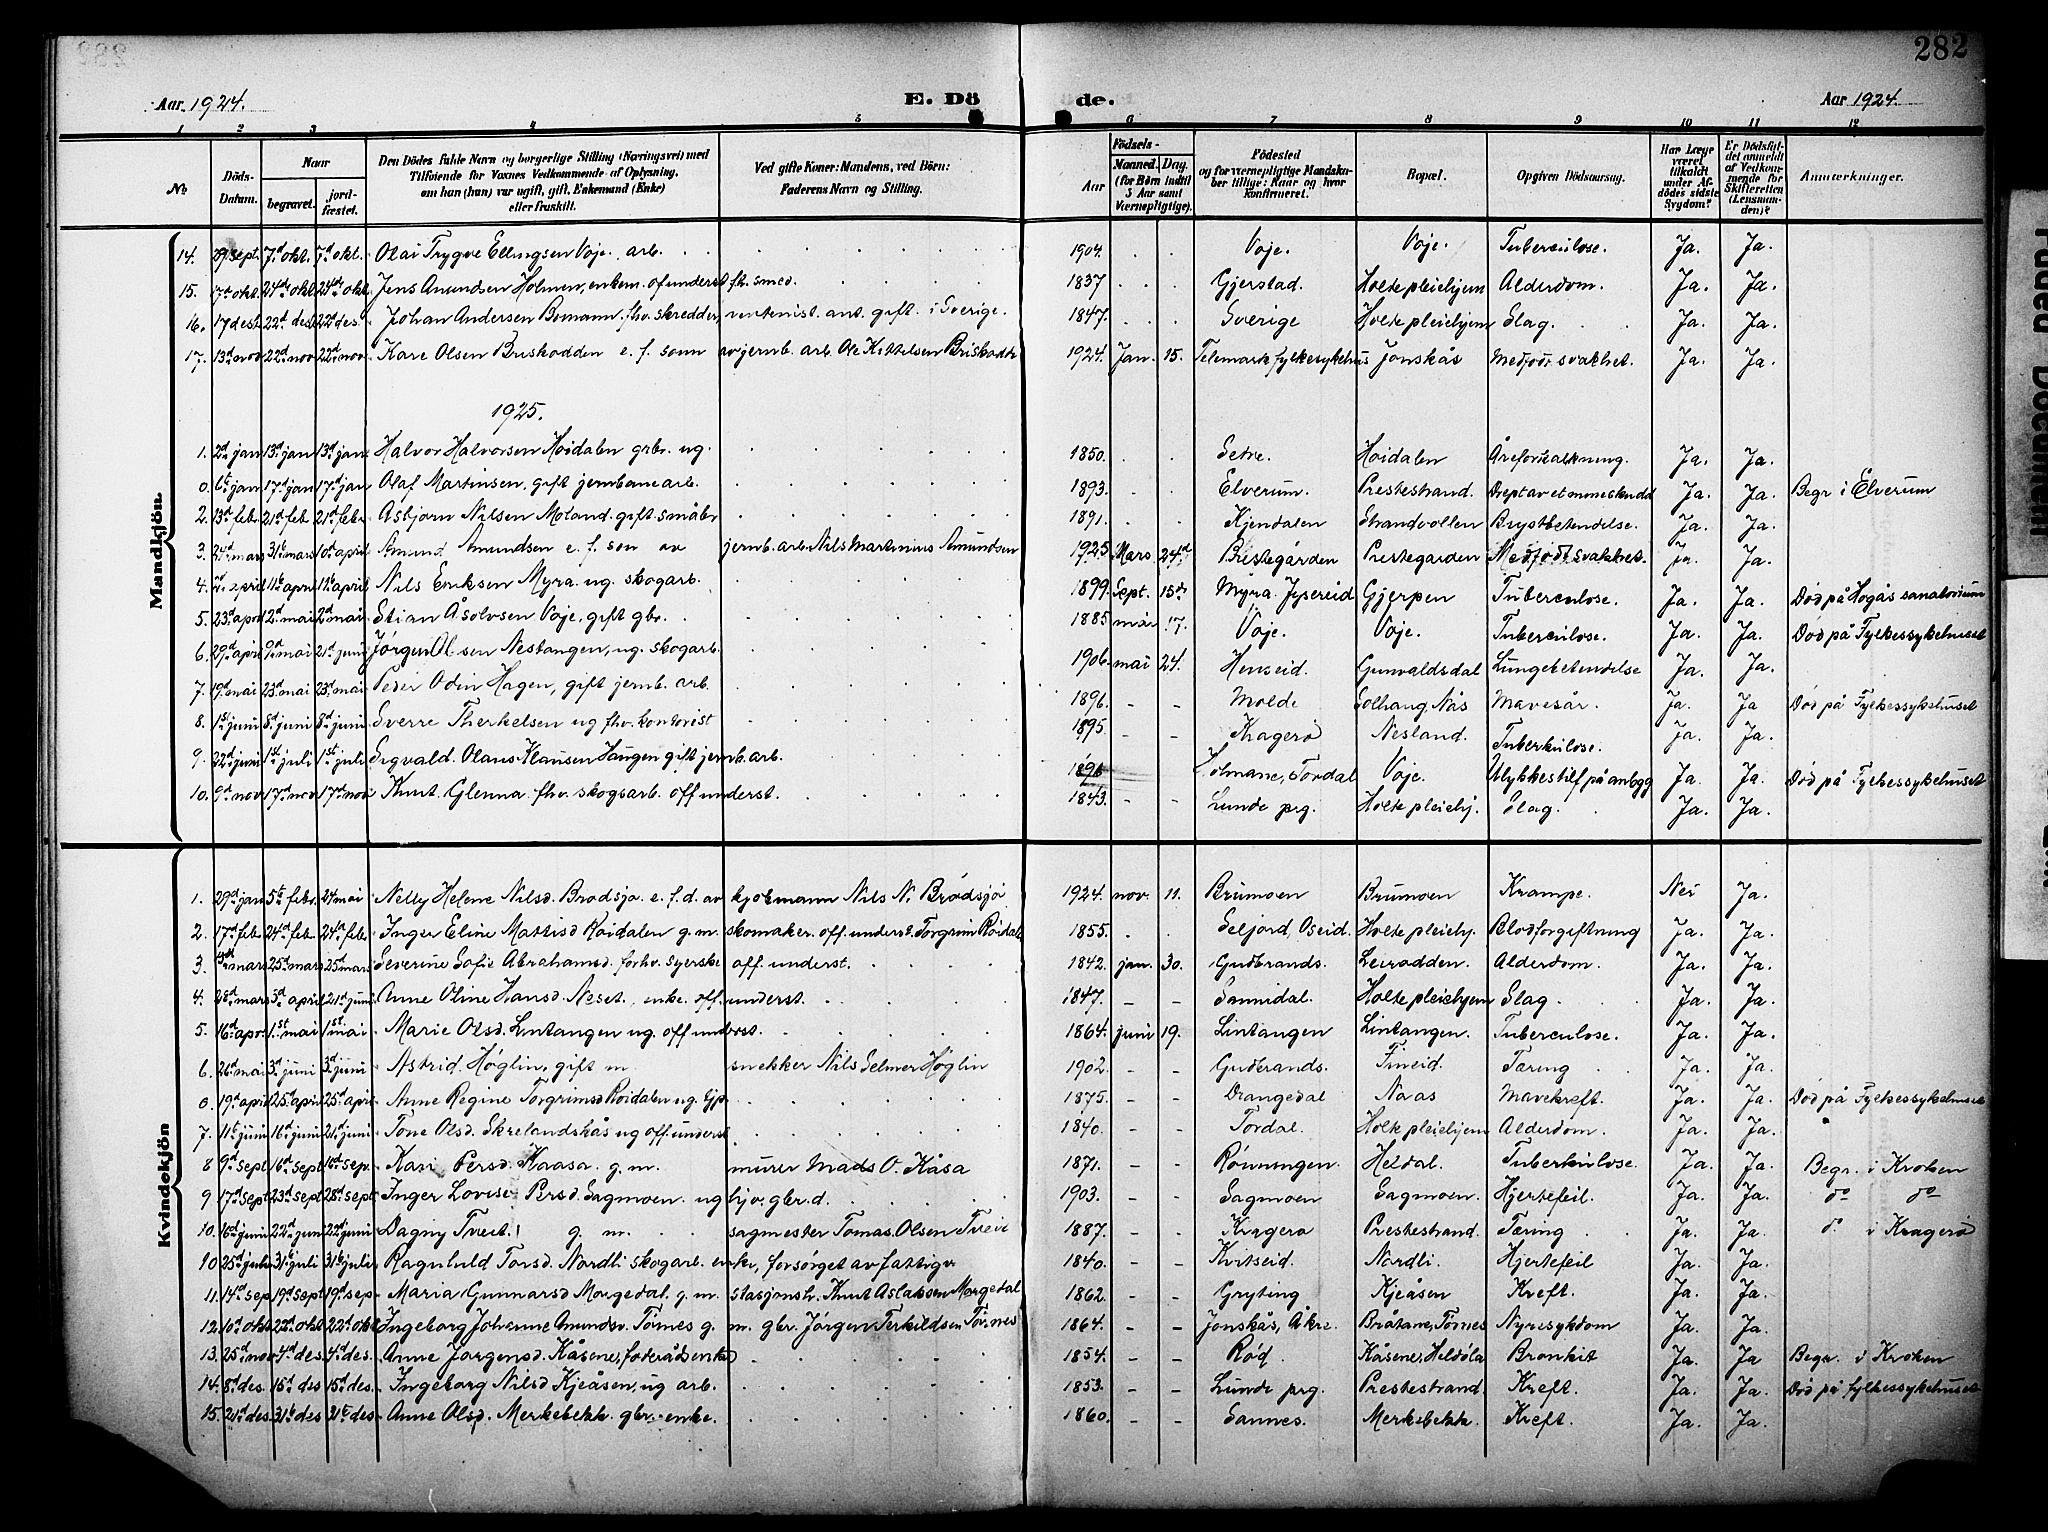 282
Aar 1924.
E. Dö
de.
Aar 1924.
1 2 3 4 5 6 7 8 9 10 11 12
No
Döds-Datum.
Naar
begravet.
jord-fæstet.
Den Dödes fulde Navn og borgerlige Stilling (Næringsvei) med Tilföiende for Voxnes Vedkommende af Oplysning, om han (hun) var ugift, gift, Enkemand (Enke) eller fraskilt.
Ved gifte Koner: Mandens, ved Börn: Faderens Navn og Stilling.
Födsels-
Aar
Maaned.
Dag.
(for Börn indtil 5 Aar samt Værnepligtige).
Födested og for værnepligtige Mandskaber tillige: Naar og hvor konfirmeret.
Bopæl.
Opgiven Dödsaarsag.
Har Læge været tilkaldt under Afdödes sidste Sygdom?
Er Dödsfaldet anmeldt af Vedkommende for Skifteretten (Lensmanden)?
Anmærkninger.
Mandkjön
14. 29 sept. 7d okt. 7d okt. Olai Trygve Ellingsen Voje, arb. 1904. Voje. Voje. Tuberculose. Ja. Ja.
15. 17d okt 24de okt 24de okt Jens Amundsen Holmen, enkem. of. underst. fh. smed. 1837 Gjerstad. Holte pleiehjem Alderdom. Ja. Ja.
16. 17 dest 22d des 22d des. Johan Andersen Bomann, fhv. skredder, ant. gift i Sverige. 1847. Sverige Holte pleiehjem Slag. Ja. Ja.
17. 13d nov 22d nov 22d nov. Kåre Olsen Briskodden e. f. sønn av jernb. arb. Ole Kittelsen Briskodde 1924. Jan. 15. Telemark fylkesykehus Jonskås Medfødt svakhet. Ja. Ja.
1925.
1. 2d jan 13d jan 13d jan Halvor Halvorsen Høidalen grbr. ug. 1850. Setre. Høidalen Åreforkalkning. Ja. Ja.
0. 6t jan 17d jan 17d jan Olaf Martinsen, gift jernbanearb. 1893. Elverum. Prestestrand. Drept av et minneskudd Ja. Ja. Begr. i Elverum
2. 13d feb. 21d feb. 21d febr. Asbjørn Nilsen Moland gift småbr 1891. Kjendalen Strandvollen Brystbetendelse. Ja. Ja.
3. 24d mars 31t mars 10d april Amund Amundsen e. f. søn av jernb. arb. Nils Martinius Amundsen 1925 Mars 24d Prestegården Prestegarden Medfødt svakhet. Ja Ja.
4. april 11t april 11t april Nils Eriksen Myra ug. skogarb. 1899. Sept. 15de Myra Gjerpen Tuberculose. Ja. Ja. Død på Høgås sanatorium
5. 23d apr 2d mai 2d mai Stian Åsolvsen Voje, gift gbr. 1885 mai 17. Voje. Voje. Tuberculose. Ja. Ja. Død på Fylkessykehuset
6. 29d april 9d mai 21d juni Jørgen Olsen Nestangen, ug. skogarb. 1906. mai 24. Henseid. Gunvaldsdal Lungebetendelse Ja. Ja.
7. 19d mai 23d mai 23d mai Peder Odin Hagen, gift jernb. arb. 1896. Molde Solhaug Nås Mavesår. Ja. Ja Død på Fylkessykehuset
8. 1st juni 8d juni 8d juni Sverre Therkelsen ug fhv. kontorist 1895. Kragerø Nesland. Tuberkulose. Ja. Ja.
9. 22d juni 1st juli 1st juli Sigvald Olaus Klausen Haugen gift jernb. arb. 1896 Tørdal Voje. Ulykkestilf på anlægg Ja. Ja. Død på Fylkessykehuset
10. 9d nov 17d nov 17d nov Knut Glenna fhv. skogsarb. off underst. 1843. Lunde prg. Holte pleiehj. Slag. Ja. Ja.
Kvindekjön
1. 29d jan 5t febr. 24 mai Nelly Helene Nilsd. Brødsjø e. f. d. av kjørmann Nils N. Brødsjø 1924. nov. 11. Brumoen Brumoen Krampe. Nei Ja.
2. 17d feb. 24d feb. 24d febr Inger Eline Mattisd Røidalen g. m. skomaker off. underst. Torgrim Røidal 1855. Seljord, Oseid. Holte pleiehj. Blodforgiftning Ja. Ja.
3. mars 25d mars 25d mars Severine Sofie Abrahamsd. forhv. syerske off. underst. 1842. jan. 30. Gudbrands. Leirodden. Alderdom. Ja. Ja.
4. 28d mars 3d april 21d juni Anne Oline Hansd. Neset, enke off. underst. 1847. Sannidal. Holte pleiehjem Slag. Ja. Ja.
5. 16d apr. 1st mai 1st mai Marie Olsd. Lintangen ug. off underst. 1864. juni 19. Lintangen Lintangen. Tuberculose. Ja. Ja.
6. 26d mai 3d juni 3d juni Astrid Høglin, gift m. snekker Nils Selmer Høglin 1902. Gudbrands. Fineid. Tæring Ja. Ja.
0. 19d april 25d april 25d april Anne Regine Torgrimsd Røidalen ug. 1875. Drangedal Naas Mavekreft. Ja. Ja. Død på Fylkessykehuset
7. 11t juni 16d juni 21d juni Tone Olsd. Skrelandskås ug off. underst. 1840. Tørdal. Holte pleiehjem Alderdom. Ja. Ja.
8. 9d sept. 16d sept 16d sep. Kari Persd. Kaasa. g. m. murer Mads O. Kåsa 1871. Rønningen. Heldal. Tuberkulose. Ja. Ja. Begr. i Kroken
9 17d sept 23d sept 28d sept Inger Lovise Persd. Sagmoen ug hjv. gbr. d. 1903. Sagmoen Sagmoen. Hjertefeil. Ja. Ja do do
10. 16d juni 22d juni 22d juni Dagny Tveit g. m. sagmester Tomas Olsen Tveit 1887. Kragerø Prestestrand. Tæring Ja. Ja. do i Kragerø
10 25d juli 31t juli 31t juli Ragnhild Torsd. Nordli skogarb. enke, forsørget av fattigv 1840. Kvitseid. Nordli. Hjertefeil Ja. Ja.
11. 14d sep. 19d sept 19d sep. Maria Gunnarsd. Morgedal g. m. stasjonsh. Knut Aslaksen Morgedal 1862. Gryting Kjeåsen Kreft. Ja. Ja.
12. 10d okt 22d okt 22d okt Ingeborg Johanne Amundsd. Tørnes g. m. gbr. Jørgen Terkildsen Tørnes 1864. Jonskås, Åkre. Bråtane, Tørnes Nyresykdom Ja. Ja.
13. 25d nov 4d des. 4d des. Anne Jørgensd. Kåsene, foderådsenke 1854. Rød Kåsene, Heldøla Bronkit Ja. Ja Begr. i Kroken
14. 8d des. 15d des 15d des. Ingeborg Nilsd Kjeåsen, ug arb. 1853. Lunde prg. Prestestrand. Kreft. Ja. Ja. Død på fylkessykehuset
15. 21d des. 31t des 31t des. Anne Olsd. Merkebekk gbr. enke. 1860. Sannes. Merkebekk Kreft. Ja. Ja.